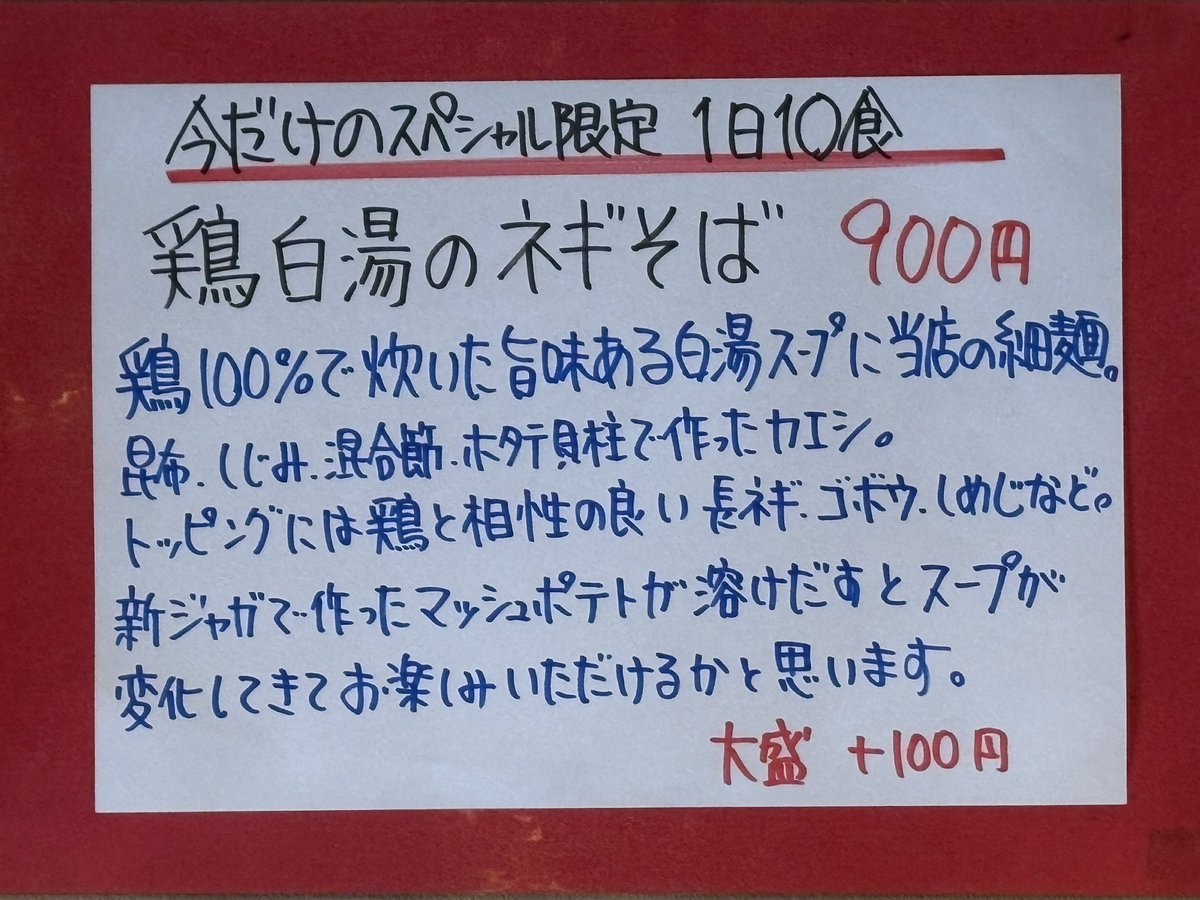 今だけのスペシャル限定 1日10食
鶏白湯のネギそば 900円
鶏100%で炊いた旨味ある白湯スープに当店の細麺。
昆布、しじみ、混合節、ホタテ貝柱で作ったカエシ。
トッピングには鶏と相性の良い長ネギ、ゴボウ、しめじなど。
新ジャガで作ったマッシュポテトが溶けだすとスープが
変化してきてお楽しみいただけるかと思います。
大盛 +100円